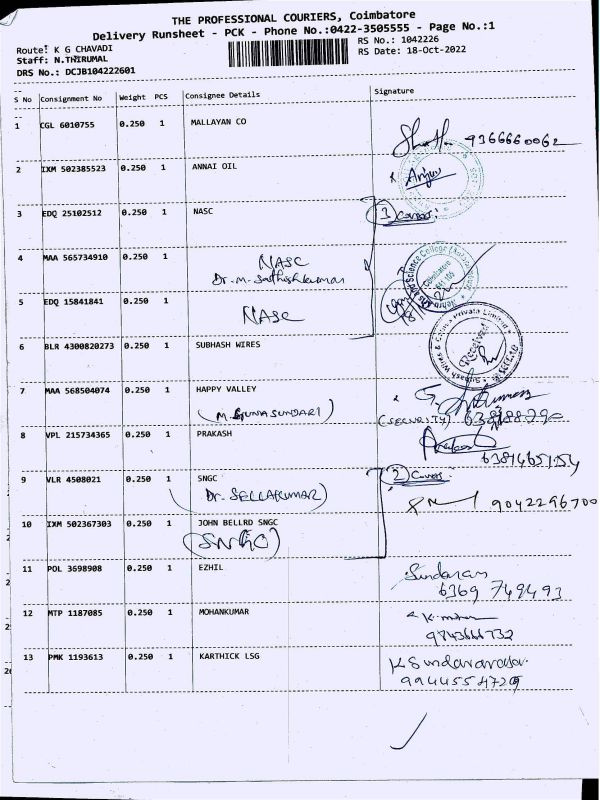 THE PROFESSIONAL COURIERS, Coimbatore
Delivery Runsheet - PCK - Phone No.:0422-3505555 - Page No.:1
Route: K G CHAVADI
RS No.: 1042226
Staff: N.THIRUMAL
RS Date: 18-Oct-2022
DRS No.: DCJB104222601
S No Consignment No Weight PCS Consignee Details Signature
1 CGL 6010755 0.250 1 MALLAYAN CO
9366660062
2 IXM 502385523 0.250 1 ANNAI OIL
Anju
3 EDQ 25102512 0.250 1 NASC
3 Covers
4 MAA 565734910 0.250 1 NASC
Dr. M. Sathishkumar
5 EDQ 15841841 0.250 1
NASC
6 BLR 4300820273 0.250 1 SUBHASH WIRES
Received
7 MAA 568504074 0.250 1 HAPPY VALLEY
(M. GUNASUNDARI)
(SECURITY)
8 VPL 215734365 0.250 1 PRAKASH
9 VLR 4508021 0.250 1 SNGC
2 Covers
(Dr. SELLAKUMAR)
9042296700
10 IXM 502367303 0.250 1 JOHN BELLRD SNGC
11 POL 3698908 0.250 1 EZHIL
Sundaram
6369 749493
12 MTP 1187085 0.250 1 MOHANKUMAR
9843666732
13 PMK 1193613 0.250 1 KARTHICK LSG